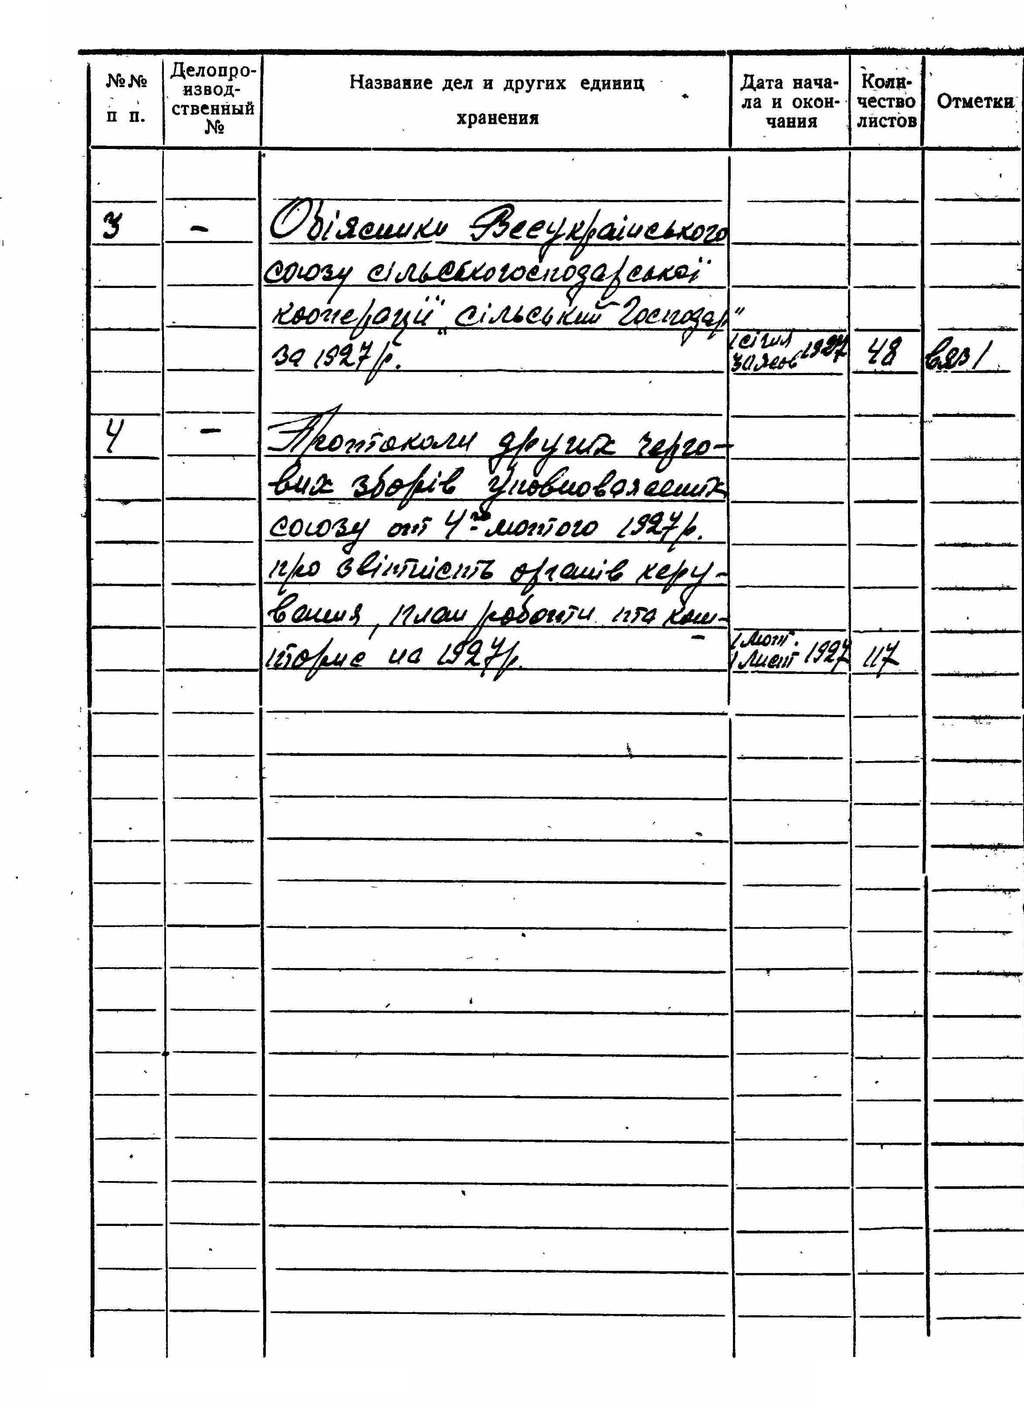 №№ п п.
Делопроизвод-ственный №
Название дел и других единиц хранения
Дата нача-ла и окон-чания
Коли-чество листов
Отметки
3 -
Обіясники Всеукраїнського
союзу сільськогосподарської
кооперації „Сільський Господар"
за 1927 р.
1 січня 1927
48
вяз 1
4 -
Протоколи других черго-
вих зборів уповноважених
союзу от 4го лютого 1927 р.
про звітність органів керу-
вання, план роботи та кош-
торис на 1927 р.
1 лют.
1 лист 1927
117